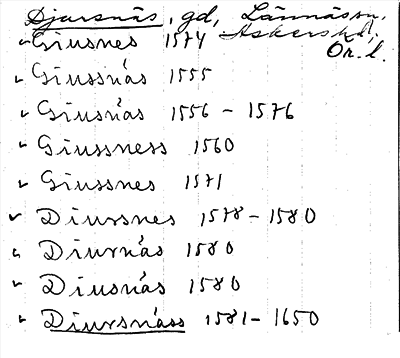 Djursnäs, gd, Lännäs sn,
Askers hd,
Ör. l.
Giusnes 1574
Giussnäs 1555
Giusnäs 1556 - 1576
Giussness 1560
Giussnes 1571
Diursnes 1578 - 1580
Diurnäs 1580
Diusnäs 1580
Diursnäss 1581 - 1650